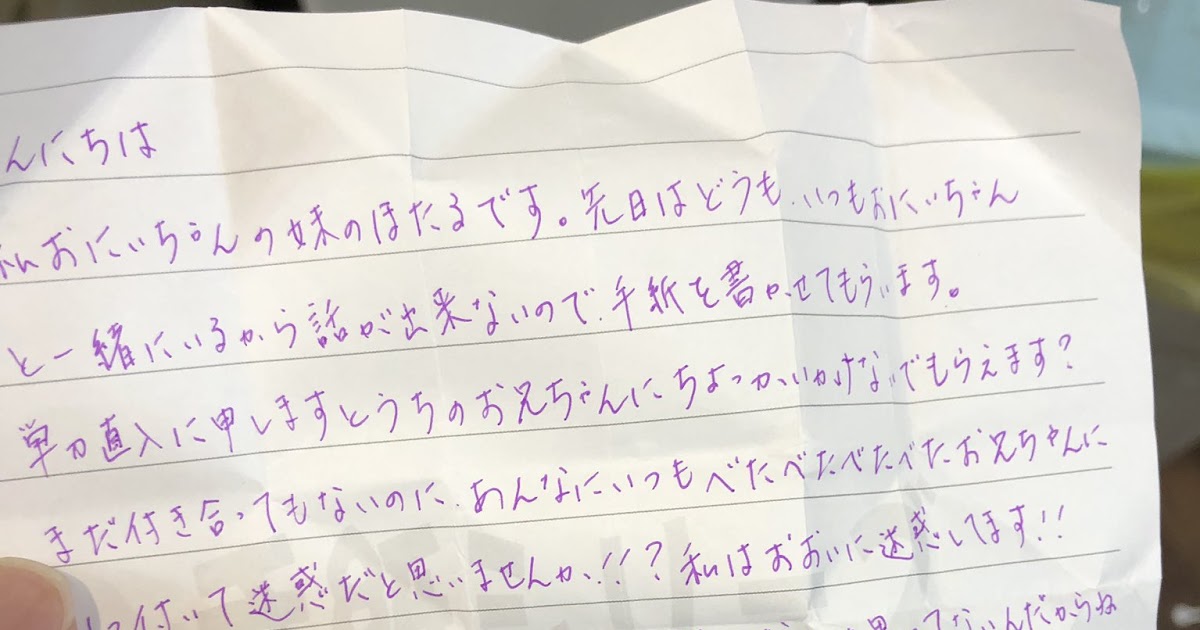 んにちは
私おにいちゃんの妹のほたるです。先日はどうも、いつもおにいちゃん
と一緒にいるから話が出来ないので、手紙を書かせてもらいます。
単刀直入に申しますとうちのお兄ちゃんにちょっかいかけないでもらえます?
まだ付き合ってもないのに、あんなにいつもべたべたべたべたお兄ちゃんに
付いて迷惑だと思いませんか!!?私はおおいに迷惑してます!!
思ってないんだからね